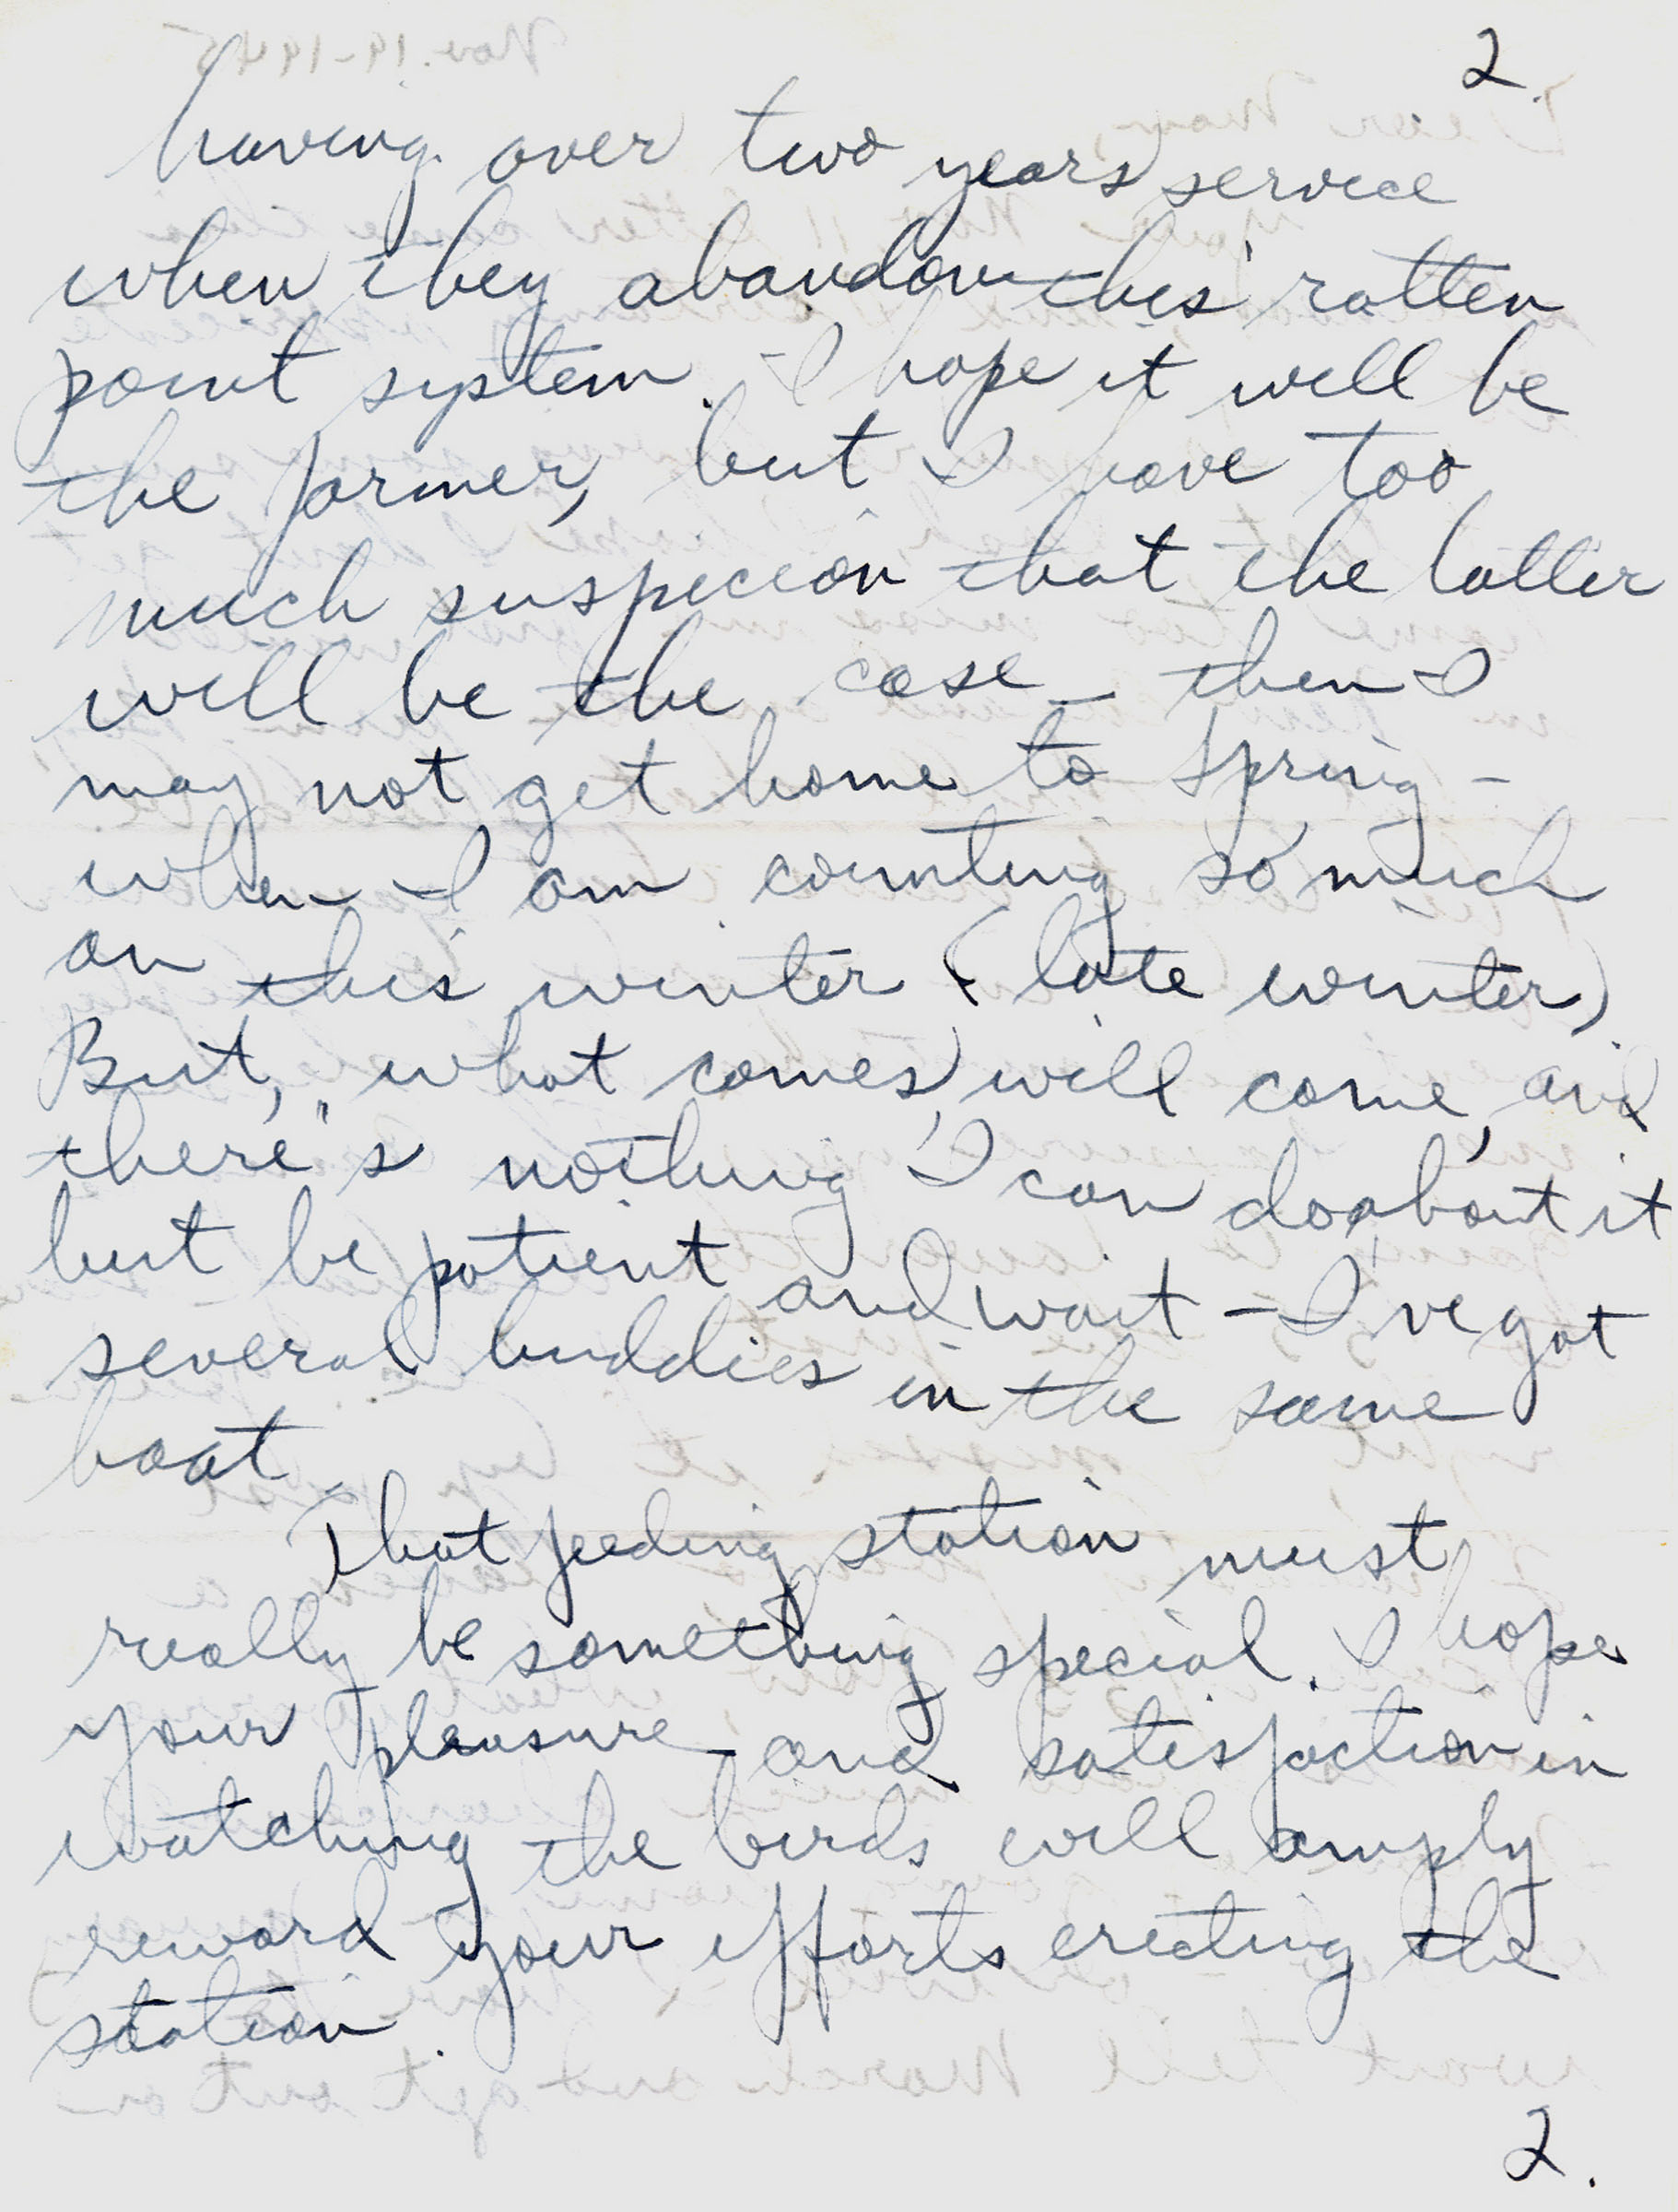 2.
having over two years service
when they abandon this rotten
point system. I hope it will be
the former, but I have too
much suspicion that the latter
will be the case - then I
may not get home to Spring -
when I am counting so much
on this winter (late winter).
But, "what comes, will come, and
there"s nothing I can do about it
but be patient and wait - I've got
several buddies in the same
boat.
That feeding station must
really be something special. I hope
your pleasure and satisfaction in
watching the birds will amply
reward your efforts erecting the
station.
2.